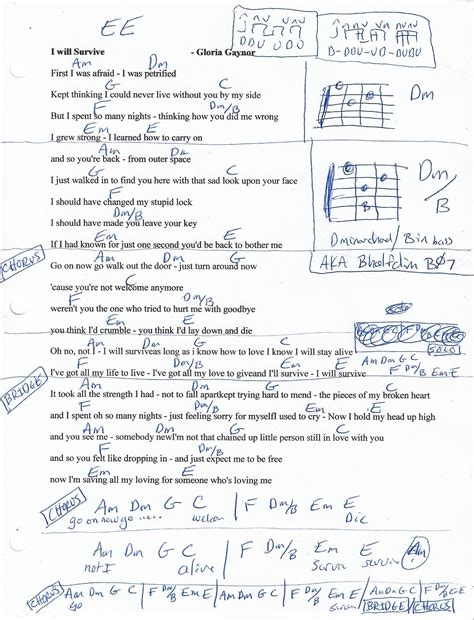 EE
D DU UDU
D-DDU-UD-DUDU
I will Survive - Gloria Gaynor
Am Dm
First I was afraid - I was petrified
G C
Kept thinking I could never live without you by my side
F Dm/B
But I spent so many nights - thinking how you did me wrong
Em E
I grew strong - I learned how to carry on
Am Dm
and so you're back - from outer space
G C
I just walked in to find you here with that sad look upon your face
F
I should have changed my stupid lock
Dm/B
I should have made you leave your key
Em E
If I had known for just one second you'd be back to bother me
Dm
Dm/B
D minor chord / B in bass
AKA B half dim BØ7
CHORUS
Am Dm G
Go on now go walk out the door - just turn around now
C
'cause you're not welcome anymore
F Dm/B
weren't you the one who tried to hurt me with goodbye
Em E
you think I'd crumble - you think I'd lay down and die
SOLO
Am Dm G C
Oh no, not I - I will surviveas long as i know how to love I know I will stay alive
F Dm/B Em E Am Dm G C
I've got all my life to live - I've got all my love to giveand I'll survive - I will survive F Dm/B Em E
BRIDGE
Am Dm G C
It took all the strength I had - not to fall apartkept trying hard to mend - the pieces of my broken heart
F Dm/B Em E
and I spent oh so many nights - just feeling sorry for myselfI used to cry - Now I hold my head up high
Am Dm G C
and you see me - somebody newI'm not that chained up little person still in love with you
F Dm/B
and so you felt like dropping in - and just expect me to be free
Em E
now I'm saving all my loving for someone who's loving me
CHORUS
Am Dm G C | F Dm/B Em E
go on now go ..... welcom Die
Am Dm G C | F Dm/B Em E Am
not I alive Surviv surviv
CHORUS
Am Dm G C | F Dm/B Em E | Am Dm G C | F Dm/B Em E | Am Dm G C | F Dm/B E E
go Surviv BRIDGE / CHORUS